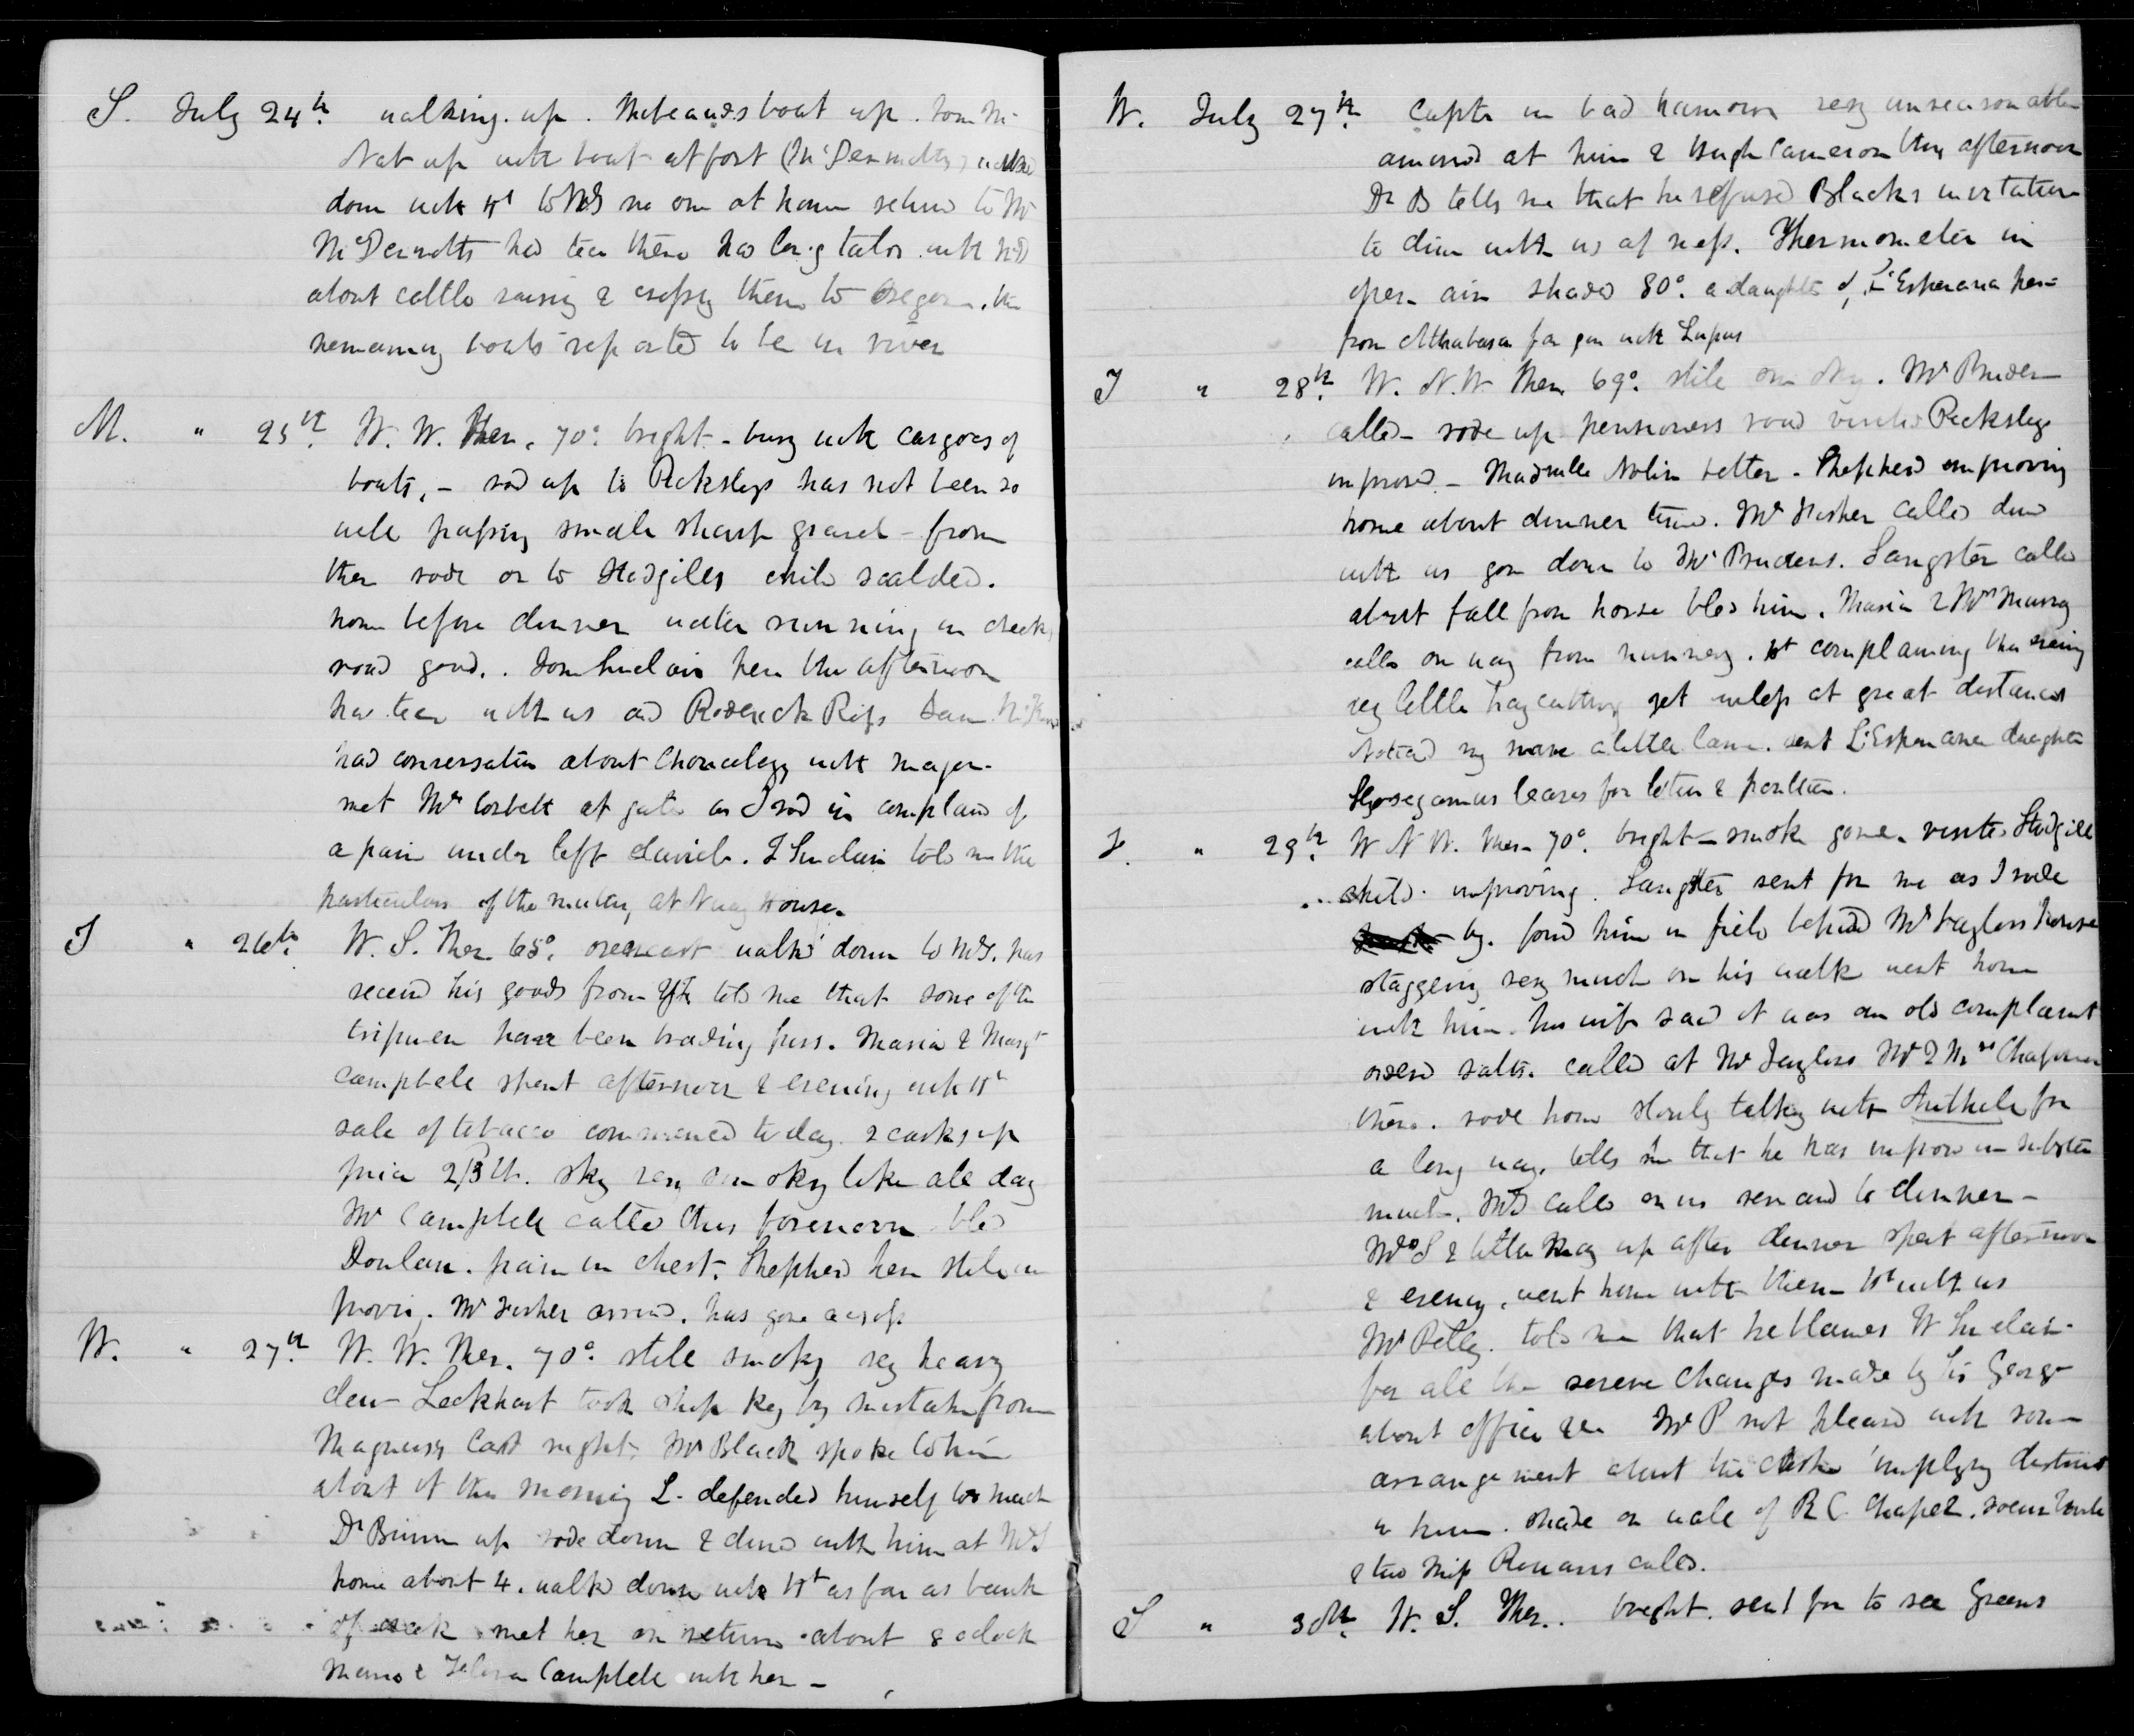 S. July 24th. walking up. boat up. Tom Mc
Nab up with boat at fort (McDermotts) walked
down with Wt to McDs no one at home returned to Mr
McDermotts had tea there had long talk with McD
about cattle raising & crossing them to Oregon. the
remaining boats reported to be in river
M. " 25th. W. W. Ther. 70°. bright - busy with cargoes of
boats, - rode up to Picksleys has not been so
well passing small sharp gravel - from
then rode on to Stodgills child scalded.
home before dinner water running in creek,
road good. . Tom Sinclair here this afternoon
had tea with us and Roderick Ross
had conversation about Chronology with major.
met Mr Corbett at gate as I rode in complains of
a pain under left clavicle. T Sinclair told me the
particulars of the mutiny at Norway House.
T " 26th. W. S. Ther. 65°. overcast walked down to McD. has
received his goods from Yk told me that some of the
tripmen have been trading furs. Maria & Margt
Campbell spent afternoon & evening with Wt
sale of tobacco commenced today. 2 casks up
price 2/3 lb. sky very smoky like all day
Mr Campbell called this forenoon bled
Donlan. pain in chest. Shepherd here still im
proving. Mr Fisher arrived. has gone across
W. " 27th. W. W. Ther. 70°. still smoky very heavy
dew - Lockhart took shop key by mistake from
Magnus last night. Mr Black spoke to him
about it this morning L. defended himself too much
Dr Bunn up rode down & dined with him at McD
home about 4. walked down with Wt as far as bank
of creek met her on return about 8 oclock
Campbell with her -
W. July 27th. Captn in bad humour very unreasonable
amused at him & Hugh Cameron this afternoon
Dr B tells me that he refused Blacks invitation
to dine with us at mess. Thermometer in
open air shade 80°. a daughter of L'Esperance here
from Athabasca far gone with Lupus
T " 28th. W. N. W. Ther. 69°. still one dry. Mr Bruden
called - rode up pensioners road visited Picksleys
improved - Madmlle Nolin better - Shepherd improving
home about dinner time. Mr Fisher called dined
with us gone down to Mr Brudens. Sangster called
about fall from horse bled him. Maria & Mrs Murray
called on way from nunnery. Wt complaining this evening
very little haycutting yet unless at great distances
Noticed my mare a little lame. sent L'Esperance daughter
Hyoscyamus leaves for lotion & poultice.
F. " 29th. W N W. Ther. 70°. bright - smoke gone. visited Stodgill
child. improving. Sangster sent for me as I rode
by. found him in field behind Mr Taylors house
staggering very much on his walk went home
with him. his wife said it was an old complaint
ordered salts. called at Mr Taylors Mr & Mrs Chapman
there. rode home slowly talking with for
a long way. tells me that he has improved in
much. McD called on us remained to dinner -
Mrs S & little Mary up after dinner spent afternoon
& evening, went home with them - Wt with us
Mr Pelly. told me that he blames W Sinclair
for all the severe changes made by Sir George
about office &c Mr P not pleased with some
arrangement about the clerks implying distrust
in him. shade on wall of R C Chapel.
& two Miss Rowans called.
S " 30th. W. S. Ther.. bright. sent for to see Greens